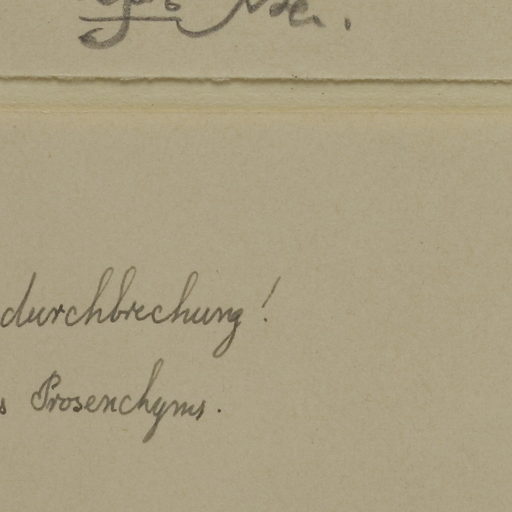 durchbrechung!
s Prosenchyms.